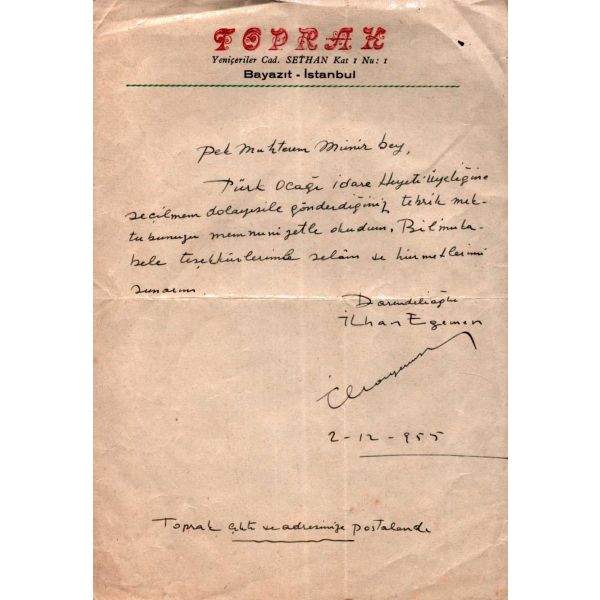 TOPRAK
Yeniçeriler Cad. SETHAN Kat 1 Nu: 1
Bayazıt - İstanbul
Pek Muhterem Münir bey,
Türk Ocağı idare Heyeti Üyeliğine
seçilmem dolayısile gönderdiğiniz tebrik mek-
tubunuzu memnuniyetle okudum. Bilmuka-
bele teşekkürlerimle selâm ve hürmetlerimi
sunarım.
Darendelioğlu
İlhan Egemen
2-12-955
Toprak çıktı ve adresinize postalandı